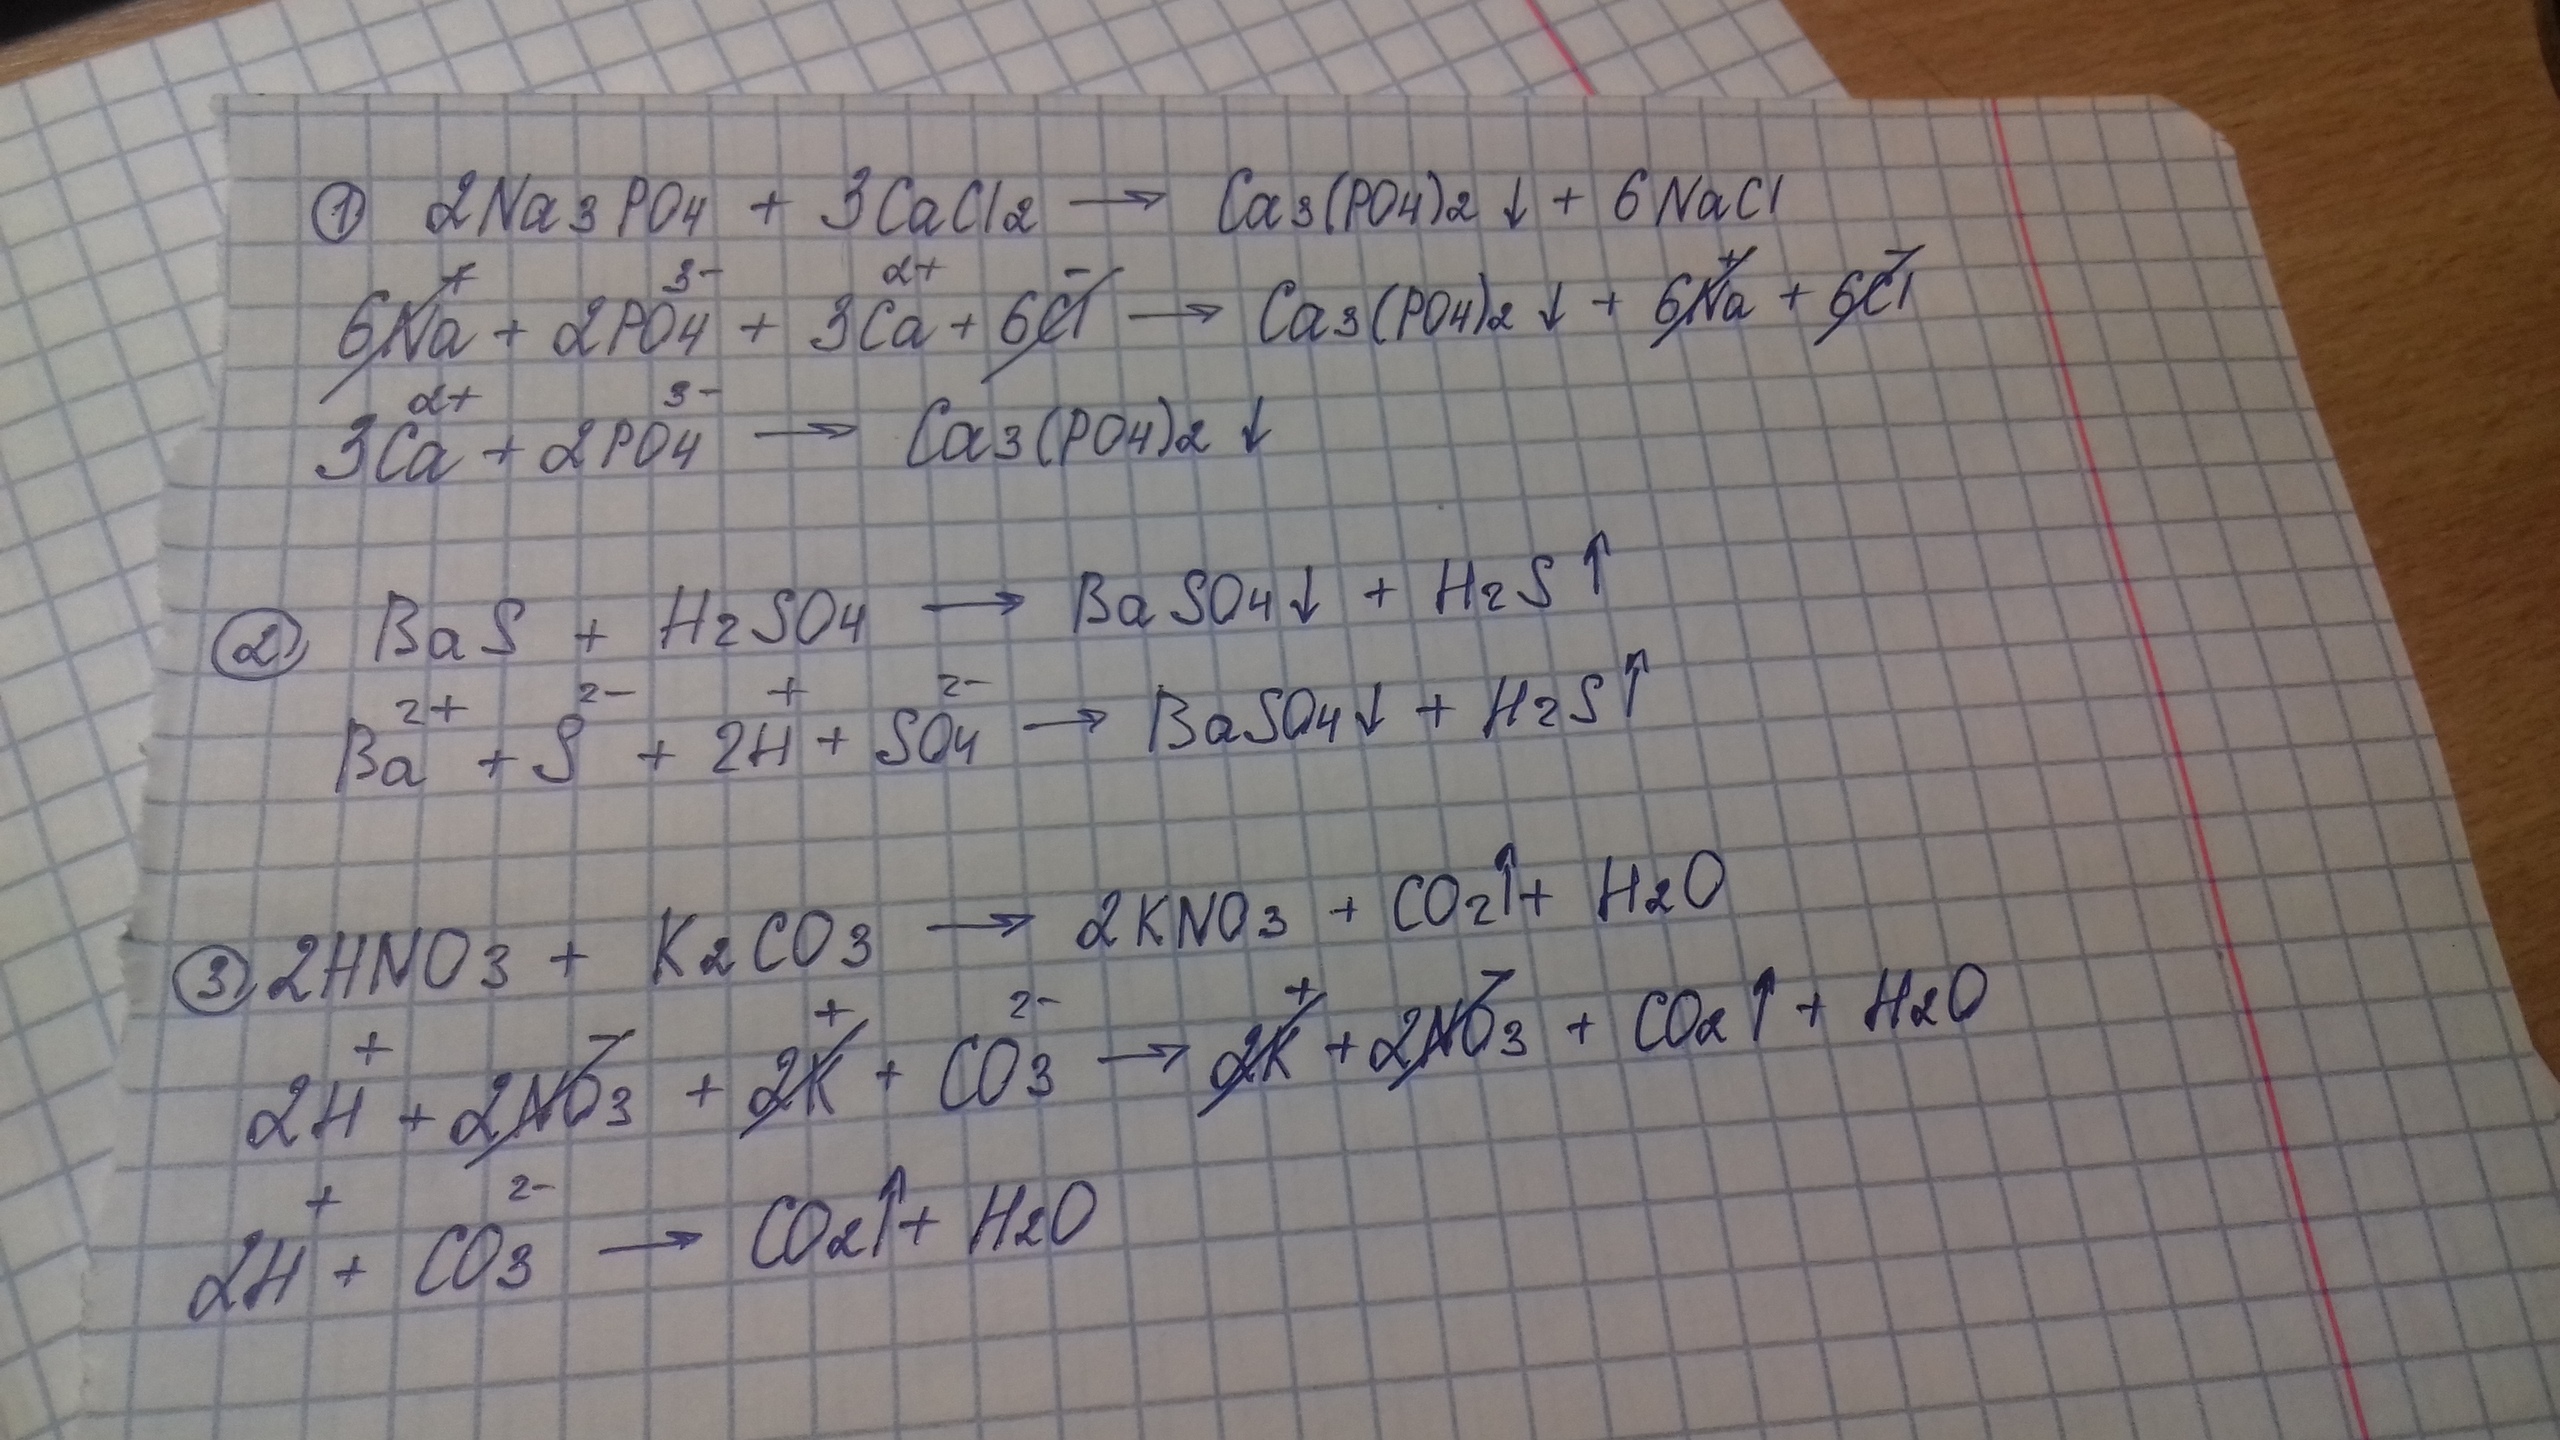 ① 2Na₃PO₄ + 3CaCl₂ → Ca₃(PO₄)₂↓ + 6NaCl
6Na⁺ + 2PO₄³⁻ + 3Ca²⁺ + 6Cl⁻ → Ca₃(PO₄)₂↓ + 6Na⁺ + 6Cl⁻
3Ca²⁺ + 2PO₄³⁻ → Ca₃(PO₄)₂↓
② BaS + H₂SO₄ → BaSO₄↓ + H₂S↑
Ba²⁺ + S²⁻ + 2H⁺ + SO₄²⁻ → BaSO₄↓ + H₂S↑
③ 2HNO₃ + K₂CO₃ → 2KNO₃ + CO₂↑ + H₂O
2H⁺ + 2NO₃⁻ + 2K⁺ + CO₃²⁻ → 2K⁺ + 2NO₃⁻ + CO₂↑ + H₂O
2H⁺ + CO₃²⁻ → CO₂↑ + H₂O